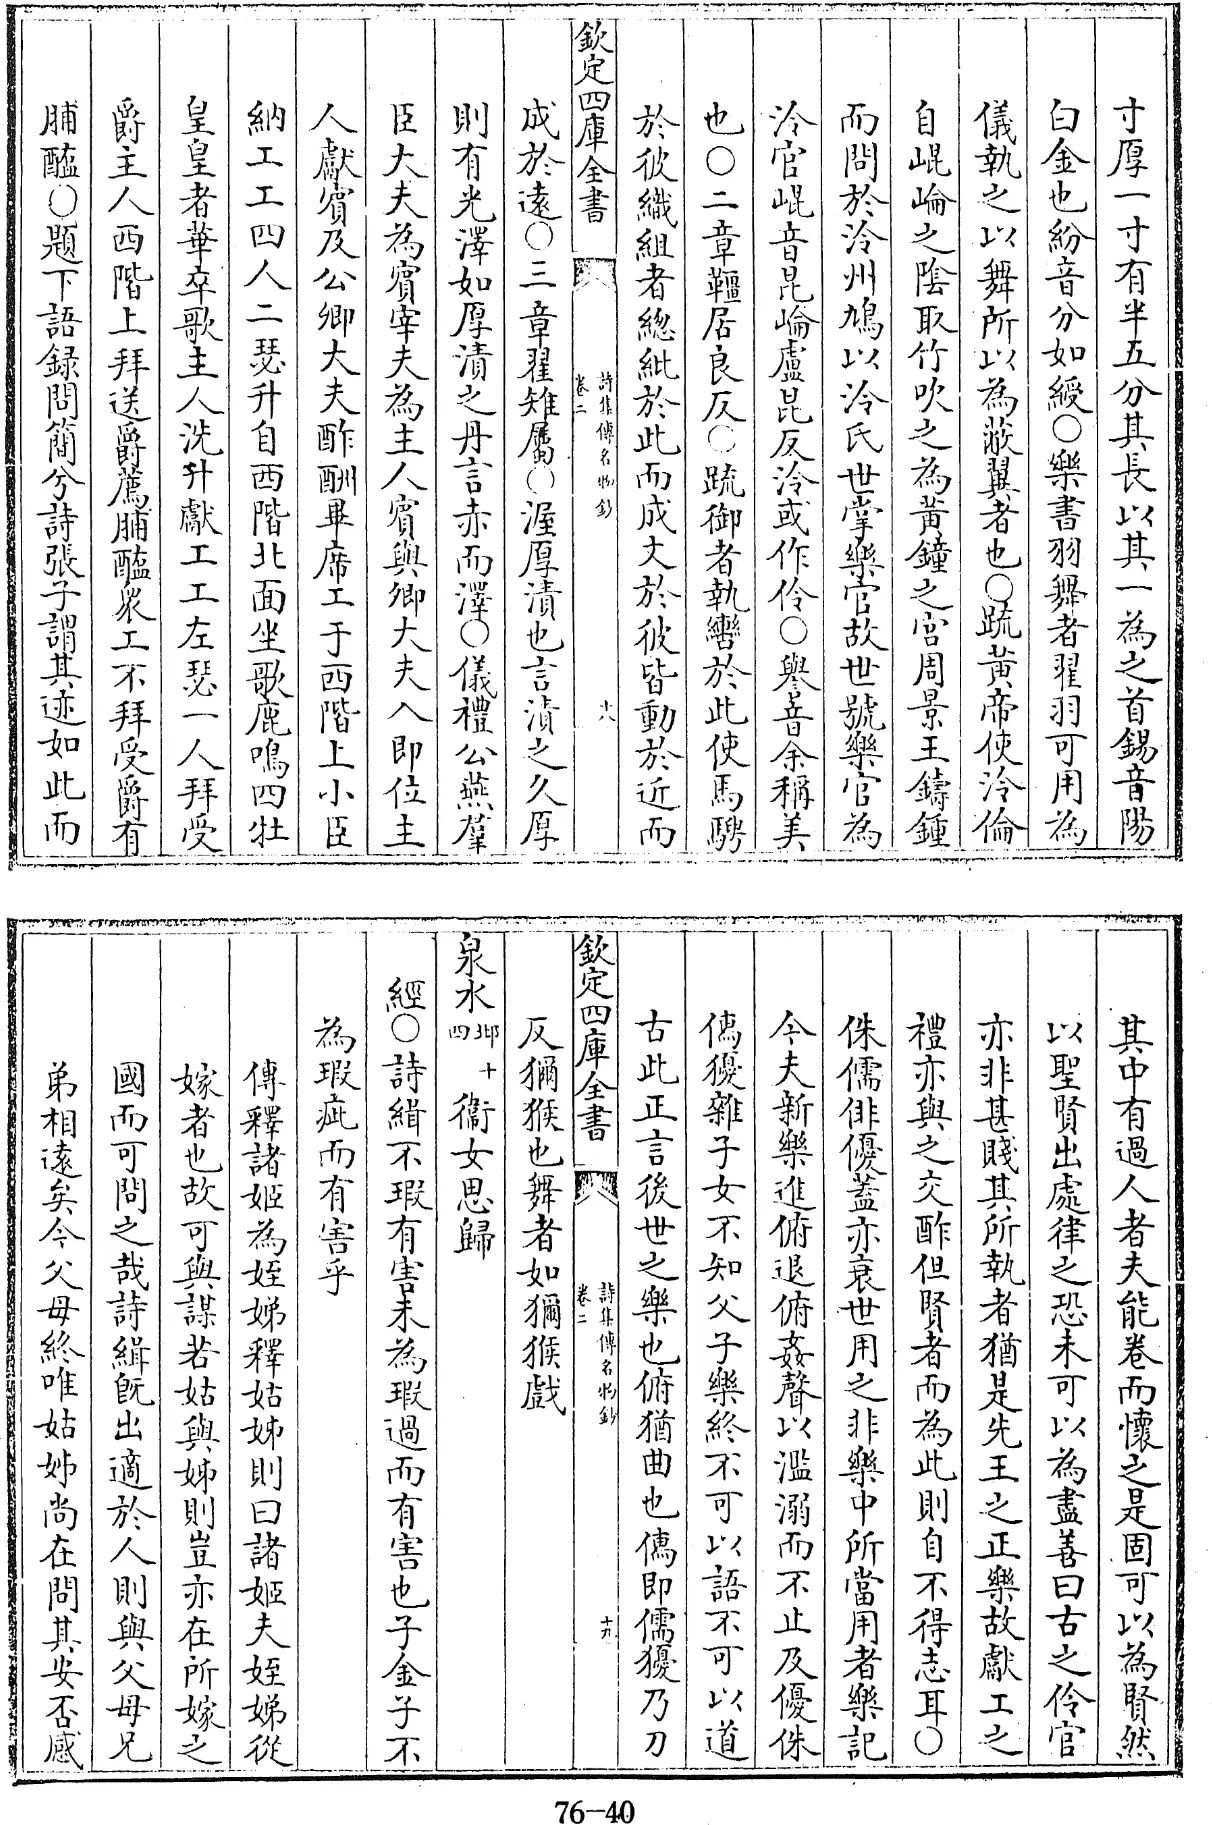 寸厚一寸有半五分其長以其一為之首錫音陽
白金也紛音分如綬○樂書羽舞者翟羽可用為
儀執之以舞所以為蔽翼者也○疏黃帝使泠倫
自崐崘之陰取竹吹之為黃鐘之宮周景王鑄鍾
而問於泠州鳩以泠氏世掌樂官故世號樂官為
泠官崐音昆崘盧昆反泠或作伶○譽音余稱美
也○二章韁居良反○疏御者執轡於此使馬騁
於彼織組者總紕於此而成文於彼皆動於近而
欽定四庫全書
詩集傳名物鈔
卷二
十八
成於遠○三章翟雉屬○渥厚漬也言漬之久厚
則有光澤如厚漬之丹言赤而澤○儀禮公燕羣
臣大夫為賓宰夫為主人賓與卿大夫入即位主
人獻賓及公卿大夫酢酬畢席工于西階上小臣
納工工四人二瑟升自西階北面坐歌鹿鳴四牡
皇皇者華卒歌主人洗升獻工工左瑟一人拜受
爵主人西階上拜送爵薦脯醢衆工不拜受爵有
脯醢○題下語録問簡兮詩張子謂其迹如此而
其中有過人者夫能卷而懷之是固可以為賢然
以聖賢出處律之恐未可以為盡善曰古之伶官
亦非甚賤其所執者猶是先王之正樂故獻工之
禮亦與之交酢但賢者而為此則自不得志耳○
侏儒俳優蓋亦衰世用之非樂中所當用者樂記
今夫新樂進俯退俯姦聲以濫溺而不止及優侏
儒獶雜子女不知父子樂終不可以語不可以道
古此正言後世之樂也俯猶曲也儒即儒獶乃刀
欽定四庫全書
詩集傳名物鈔
卷二
十九
反獼猴也舞者如獼猴戲
泉水邶十四 衞女思歸
經○詩緝不瑕有害未為瑕過而有害也子金子不
為瑕疵而有害乎
傳釋諸姬為姪娣釋姑姊則曰諸姬夫姪娣從
嫁者也故可與謀若姑與姊則豈亦在所嫁之
國而可問之哉詩緝旣出適於人則與父母兄
弟相遠矣今父母終唯姑姊尚在問其安否感
76-40